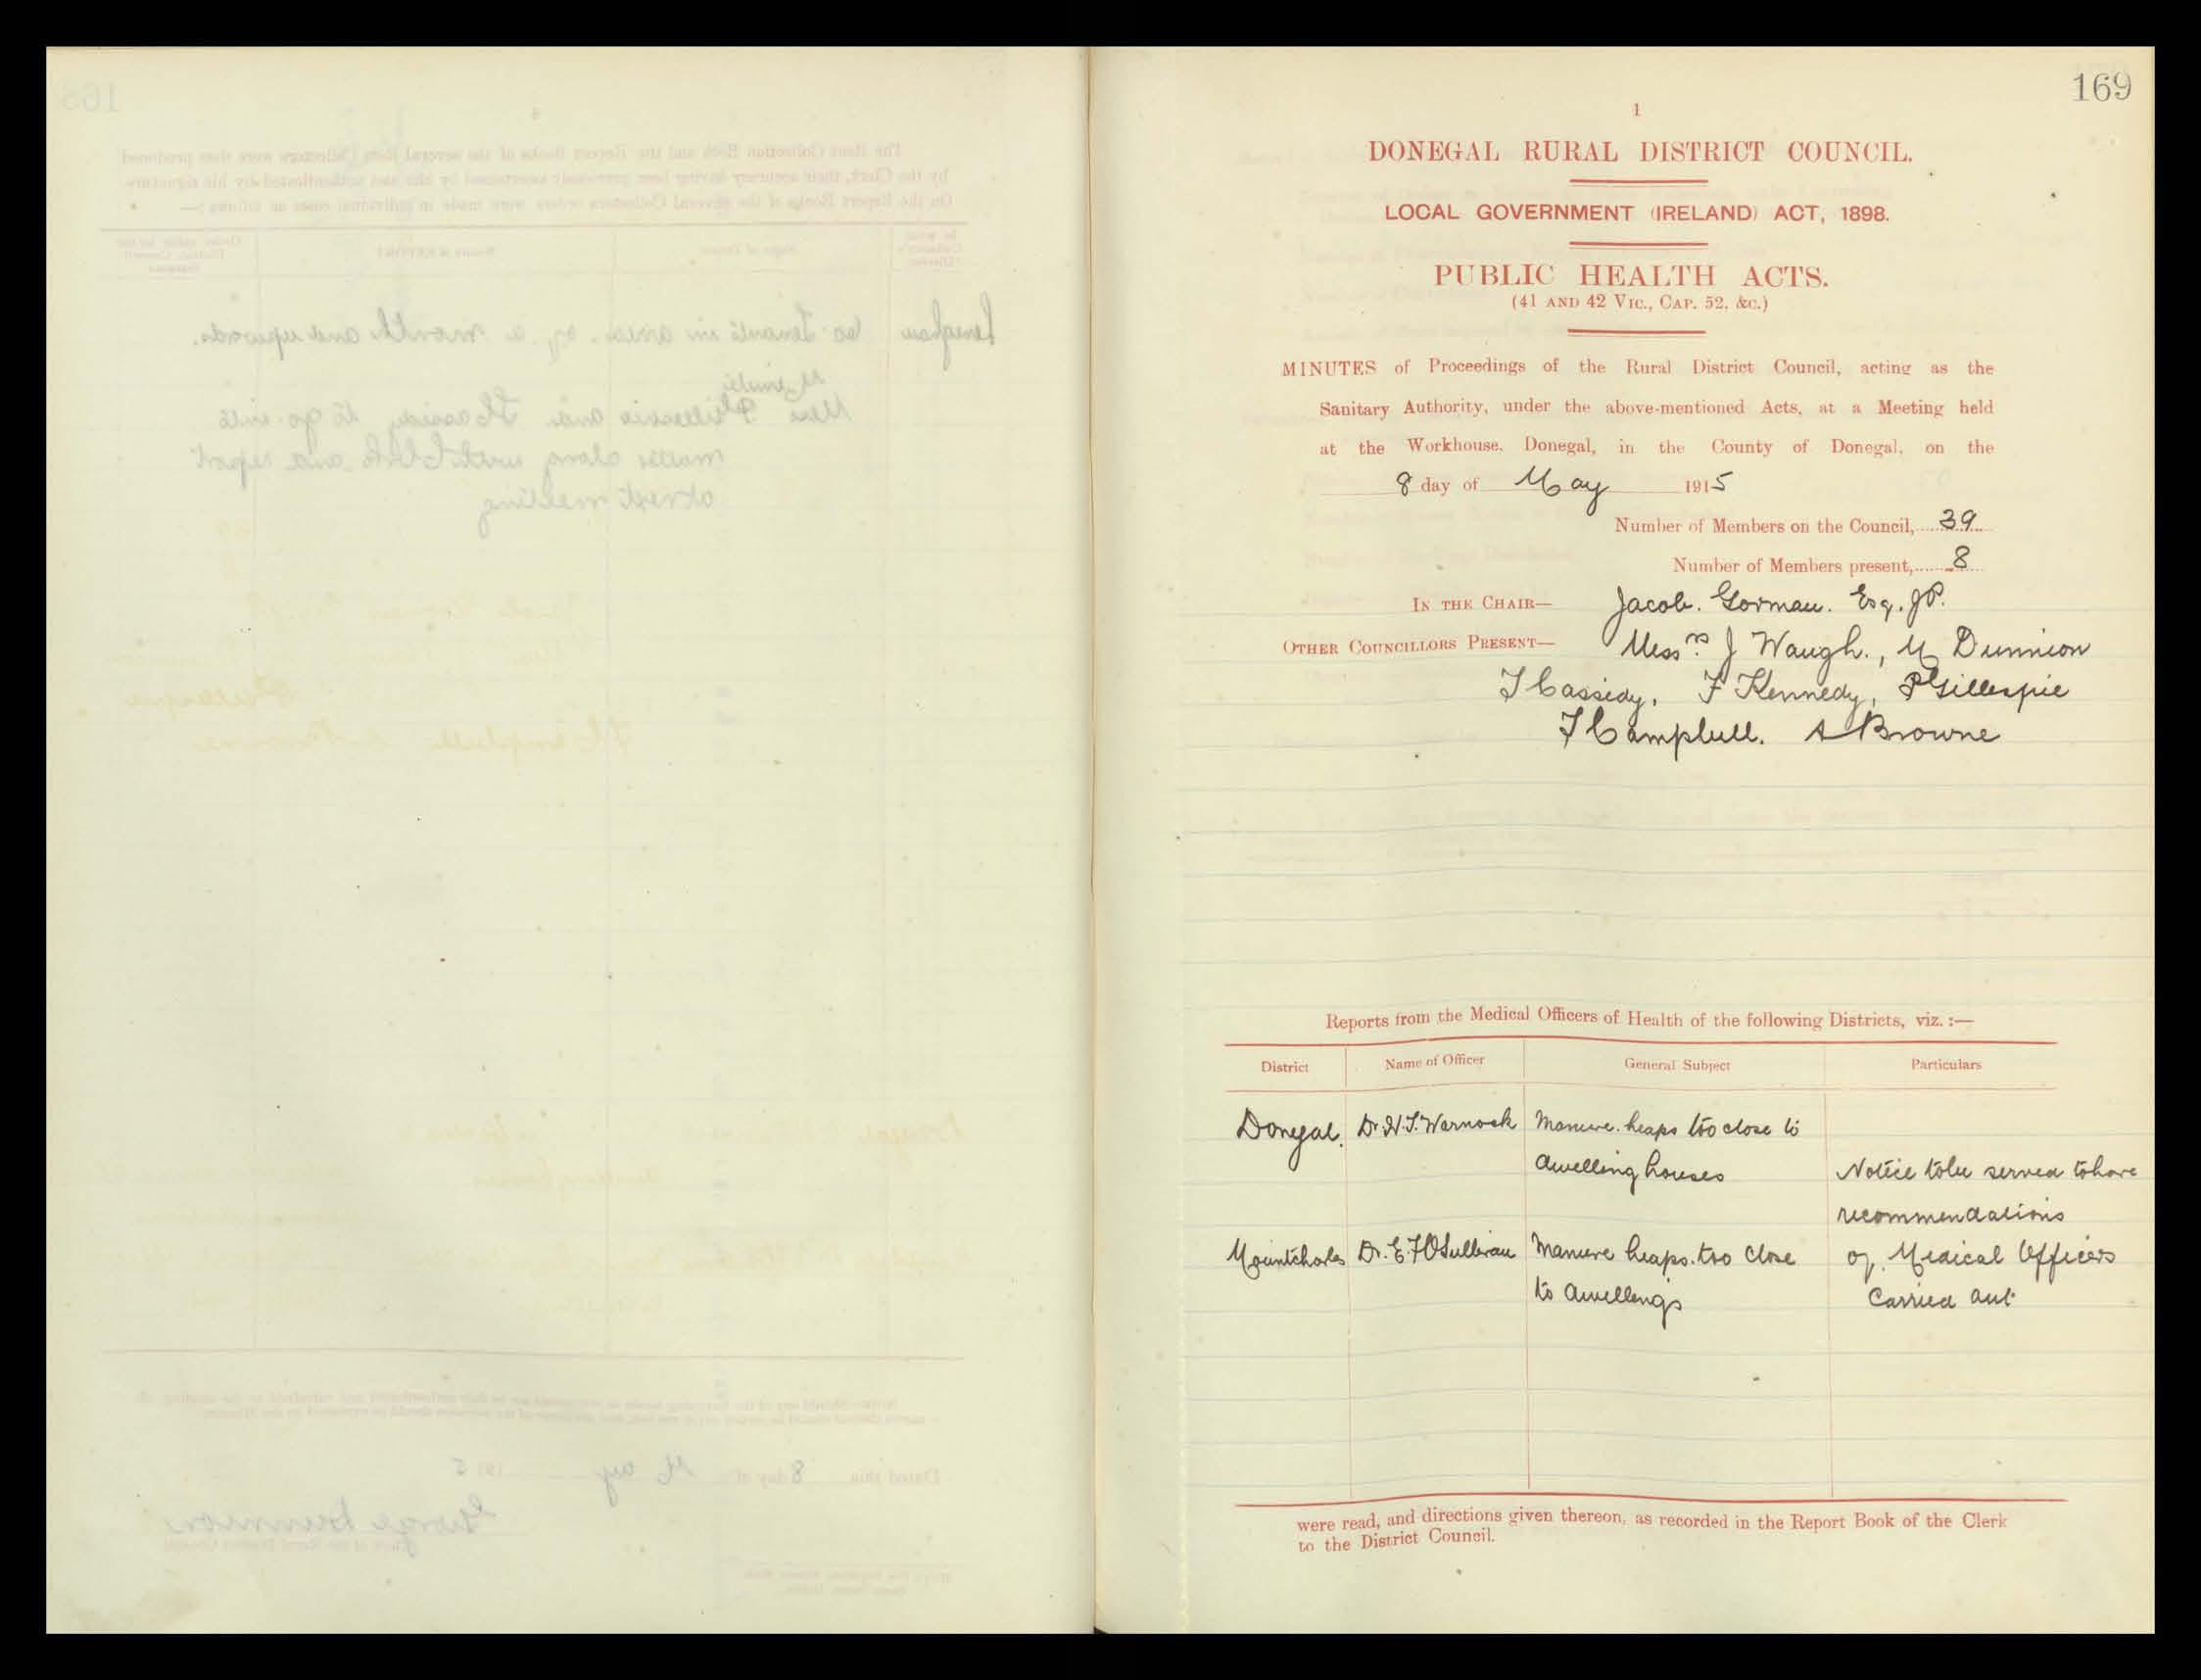 169
1
DONEGAL RURAL DISTRICT COUNCIL.
LOCAL GOVERNMENT (IRELAND) ACT, 1898.
PUBLIC HEALTH ACTS.
(41 AND 42 VIC., CAP. 52, &C.)
MINUTES of Proceedings of the Rural District Council, acting as the
Sanitary Authority, under the above-mentioned Acts, at a Meeting held
at the Workhouse, Donegal, in the County of Donegal, on the
8 day of May 1915
Number of Members on the Council, 39
Number of Members present, 8
IN THE CHAIR— Jacob. Gorman. Esq. JP.
OTHER COUNCILLORS PRESENT— Messrs. J Waugh., M Dunnion
T Cassidy, F Kennedy, P Gillespie
T Campbell. A Browne
Reports from the Medical Officers of Health of the following Districts, viz. :—
District Name of Officer General Subject Particulars
Donegal. Dr. H.T. Warnock Manure heaps too close to
dwelling houses Notice to be served to have
recommendations
Mountcharles Dr. E F O'Sullivan Manure heaps too close of Medical Officers
to dwellings Carried out
were read, and directions given thereon, as recorded in the Report Book of the Clerk
to the District Council.